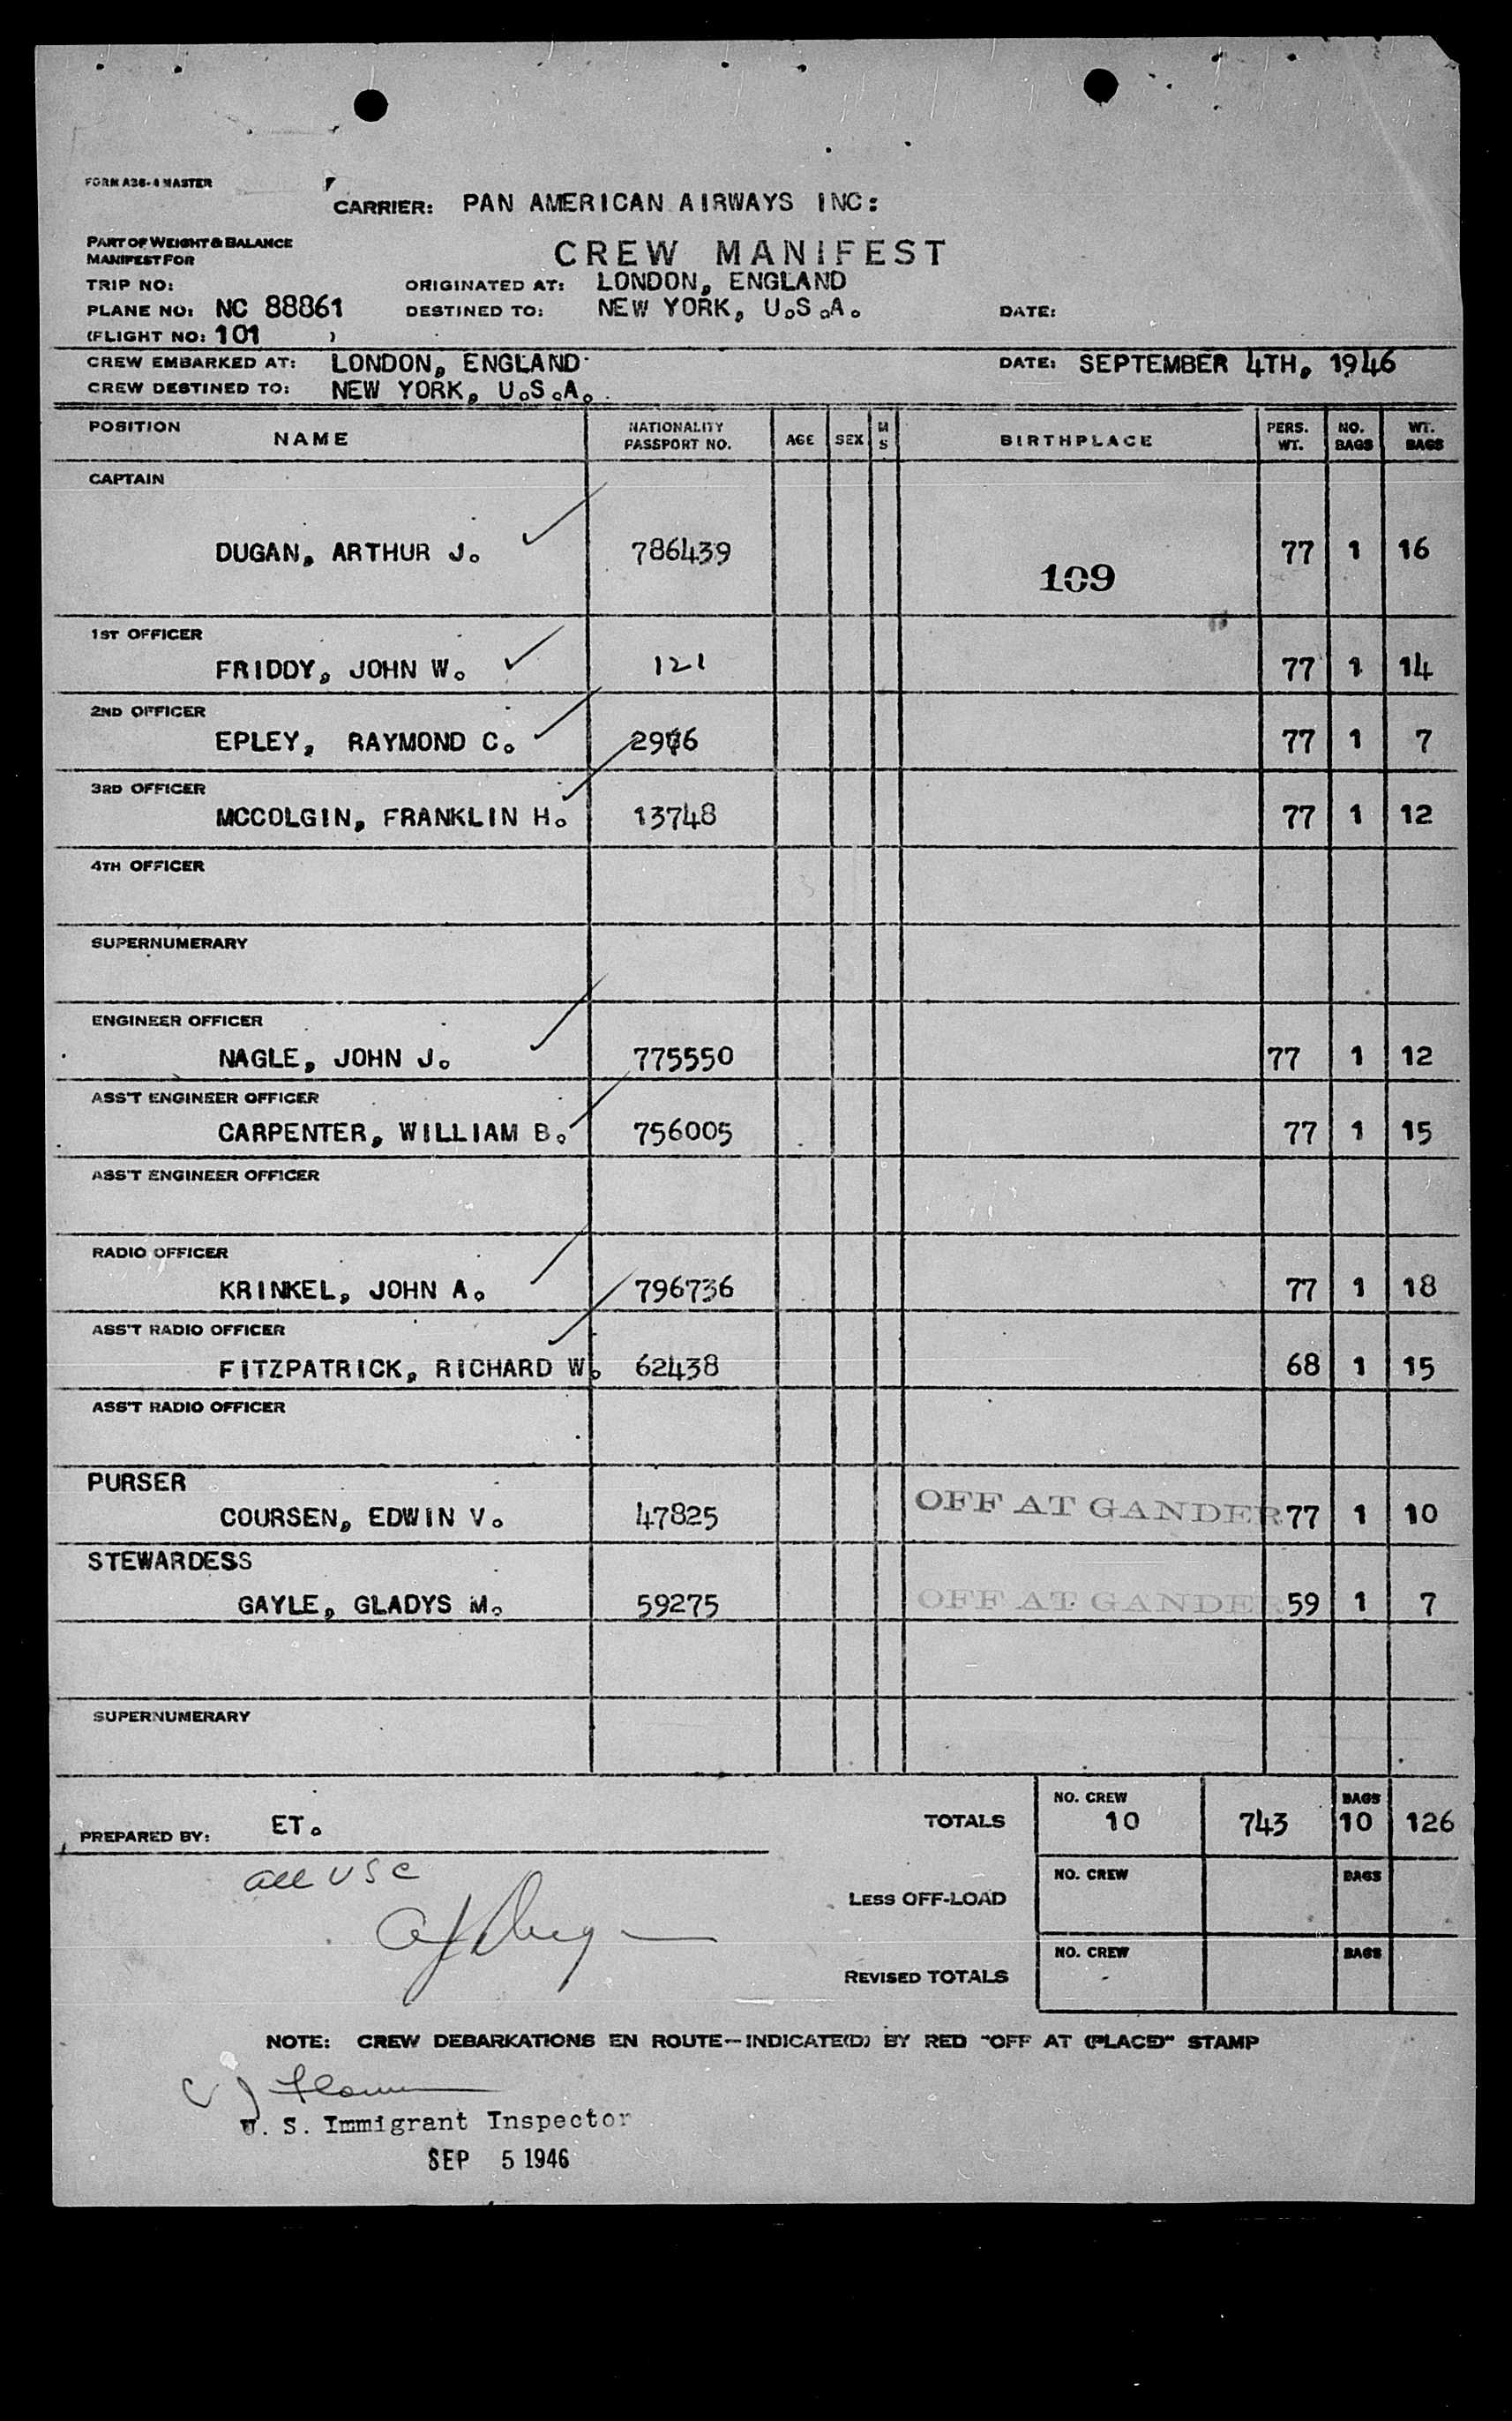 FORM A36-4 MASTER
CARRIER: PAN AMERICAN AIRWAYS INC:
PART OF WEIGHT & BALANCE
MANIFEST FOR
CREW MANIFEST
TRIP NO: ORIGINATED AT: LONDON, ENGLAND
PLANE NO: NC 88861 DESTINED TO: NEW YORK, U.S.A. DATE:
(FLIGHT NO: 101 )
CREW EMBARKED AT: LONDON, ENGLAND DATE: SEPTEMBER 4TH, 1946
CREW DESTINED TO: NEW YORK, U.S.A.
POSITION NAME NATIONALITY PASSPORT NO. AGE SEX M S BIRTHPLACE PERS. WT. NO. BAGS WT. BAGS
CAPTAIN
DUGAN, ARTHUR J. 786439 77 1 16
109
1ST OFFICER
FRIDDY, JOHN W. 121 77 1 14
2ND OFFICER
EPLEY, RAYMOND C. 77 1 7
3RD OFFICER
MCCOLGIN, FRANKLIN H. 13748 77 1 12
4TH OFFICER
SUPERNUMERARY
ENGINEER OFFICER
NAGLE, JOHN J. 775550 77 1 12
ASS'T ENGINEER OFFICER
CARPENTER, WILLIAM B. 756005 77 1 15
ASS'T ENGINEER OFFICER
RADIO OFFICER
KRINKEL, JOHN A. 796736 77 1 18
ASS'T RADIO OFFICER
FITZPATRICK, RICHARD W. 62438 68 1 15
ASS'T RADIO OFFICER
PURSER
COURSEN, EDWIN V. 47825 OFF AT GANDER 77 1 10
STEWARDESS
GAYLE, GLADYS M. 59275 OFF AT GANDER 59 1 7
SUPERNUMERARY
PREPARED BY: ET. TOTALS NO. CREW 10 743 BAGS 10 126
all USC
LESS OFF-LOAD NO. CREW BAGS
REVISED TOTALS NO. CREW BAGS
NOTE: CREW DEBARKATIONS EN ROUTE—INDICATE(D) BY RED "OFF AT (PLACE)" STAMP
U. S. Immigrant Inspector
SEP 5 1946